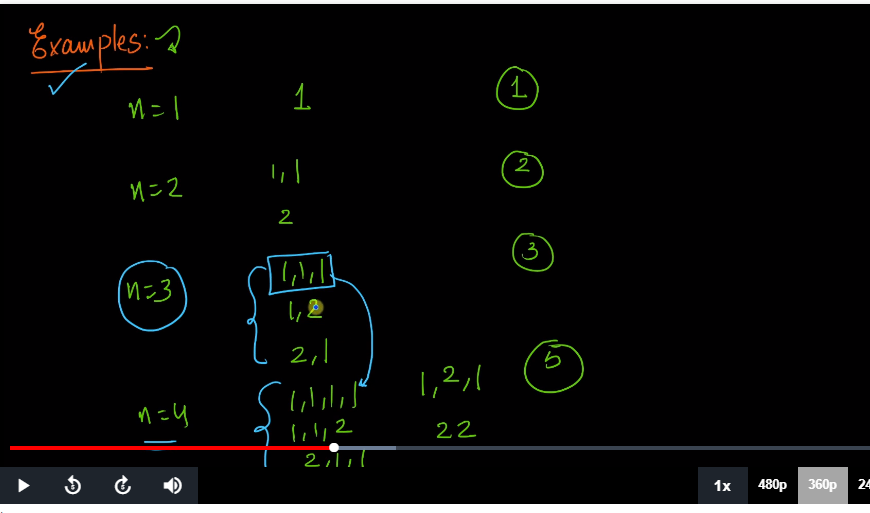 Examples:
n=1 1 1
n=2 1,1 2
2
3
n=3 1,1,1
1,2
2,1
1,2,1 5
n=4 1,1,1,1
1,1,2 22
2,1,1
1x 480p 360p 24